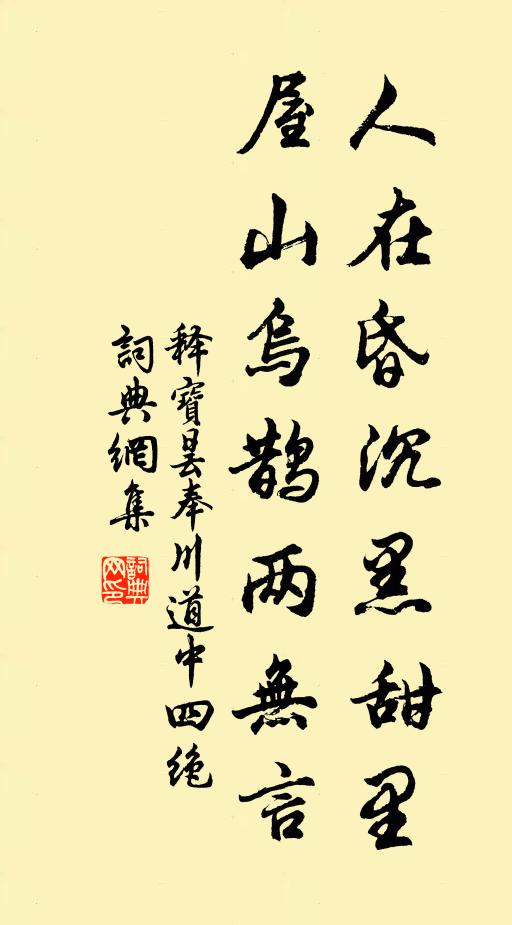 人在昏沉黑甜里
屋山乌鹊两無言
释寶曇奉川道中四绝
詞典網集
詞典
网印